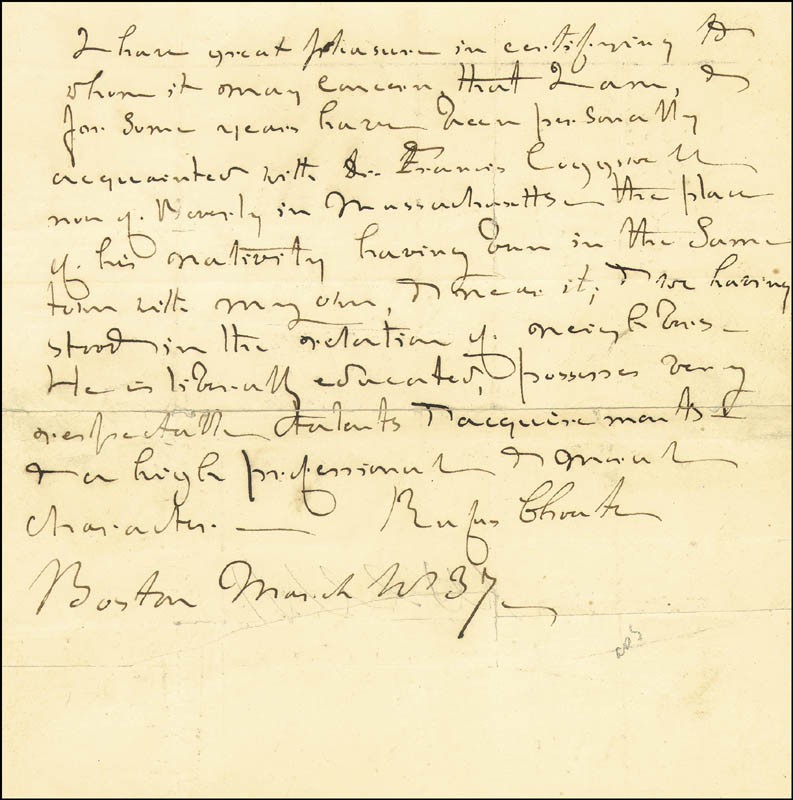 I have great pleasure in certifying to
whom it may concern, that I am, &
for some years have been personally
acquainted with Dr. Francis Coggswell
now of Beverly in Massachusetts - the place
of his nativity having been in the same
town with my own, & near it; & we having
stood in the relation of neighbors -
He is liberally educated, possesses very
respectable talents & acquirements -
& a high professional & moral
character. - Rufus Choate
Boston March 37 -